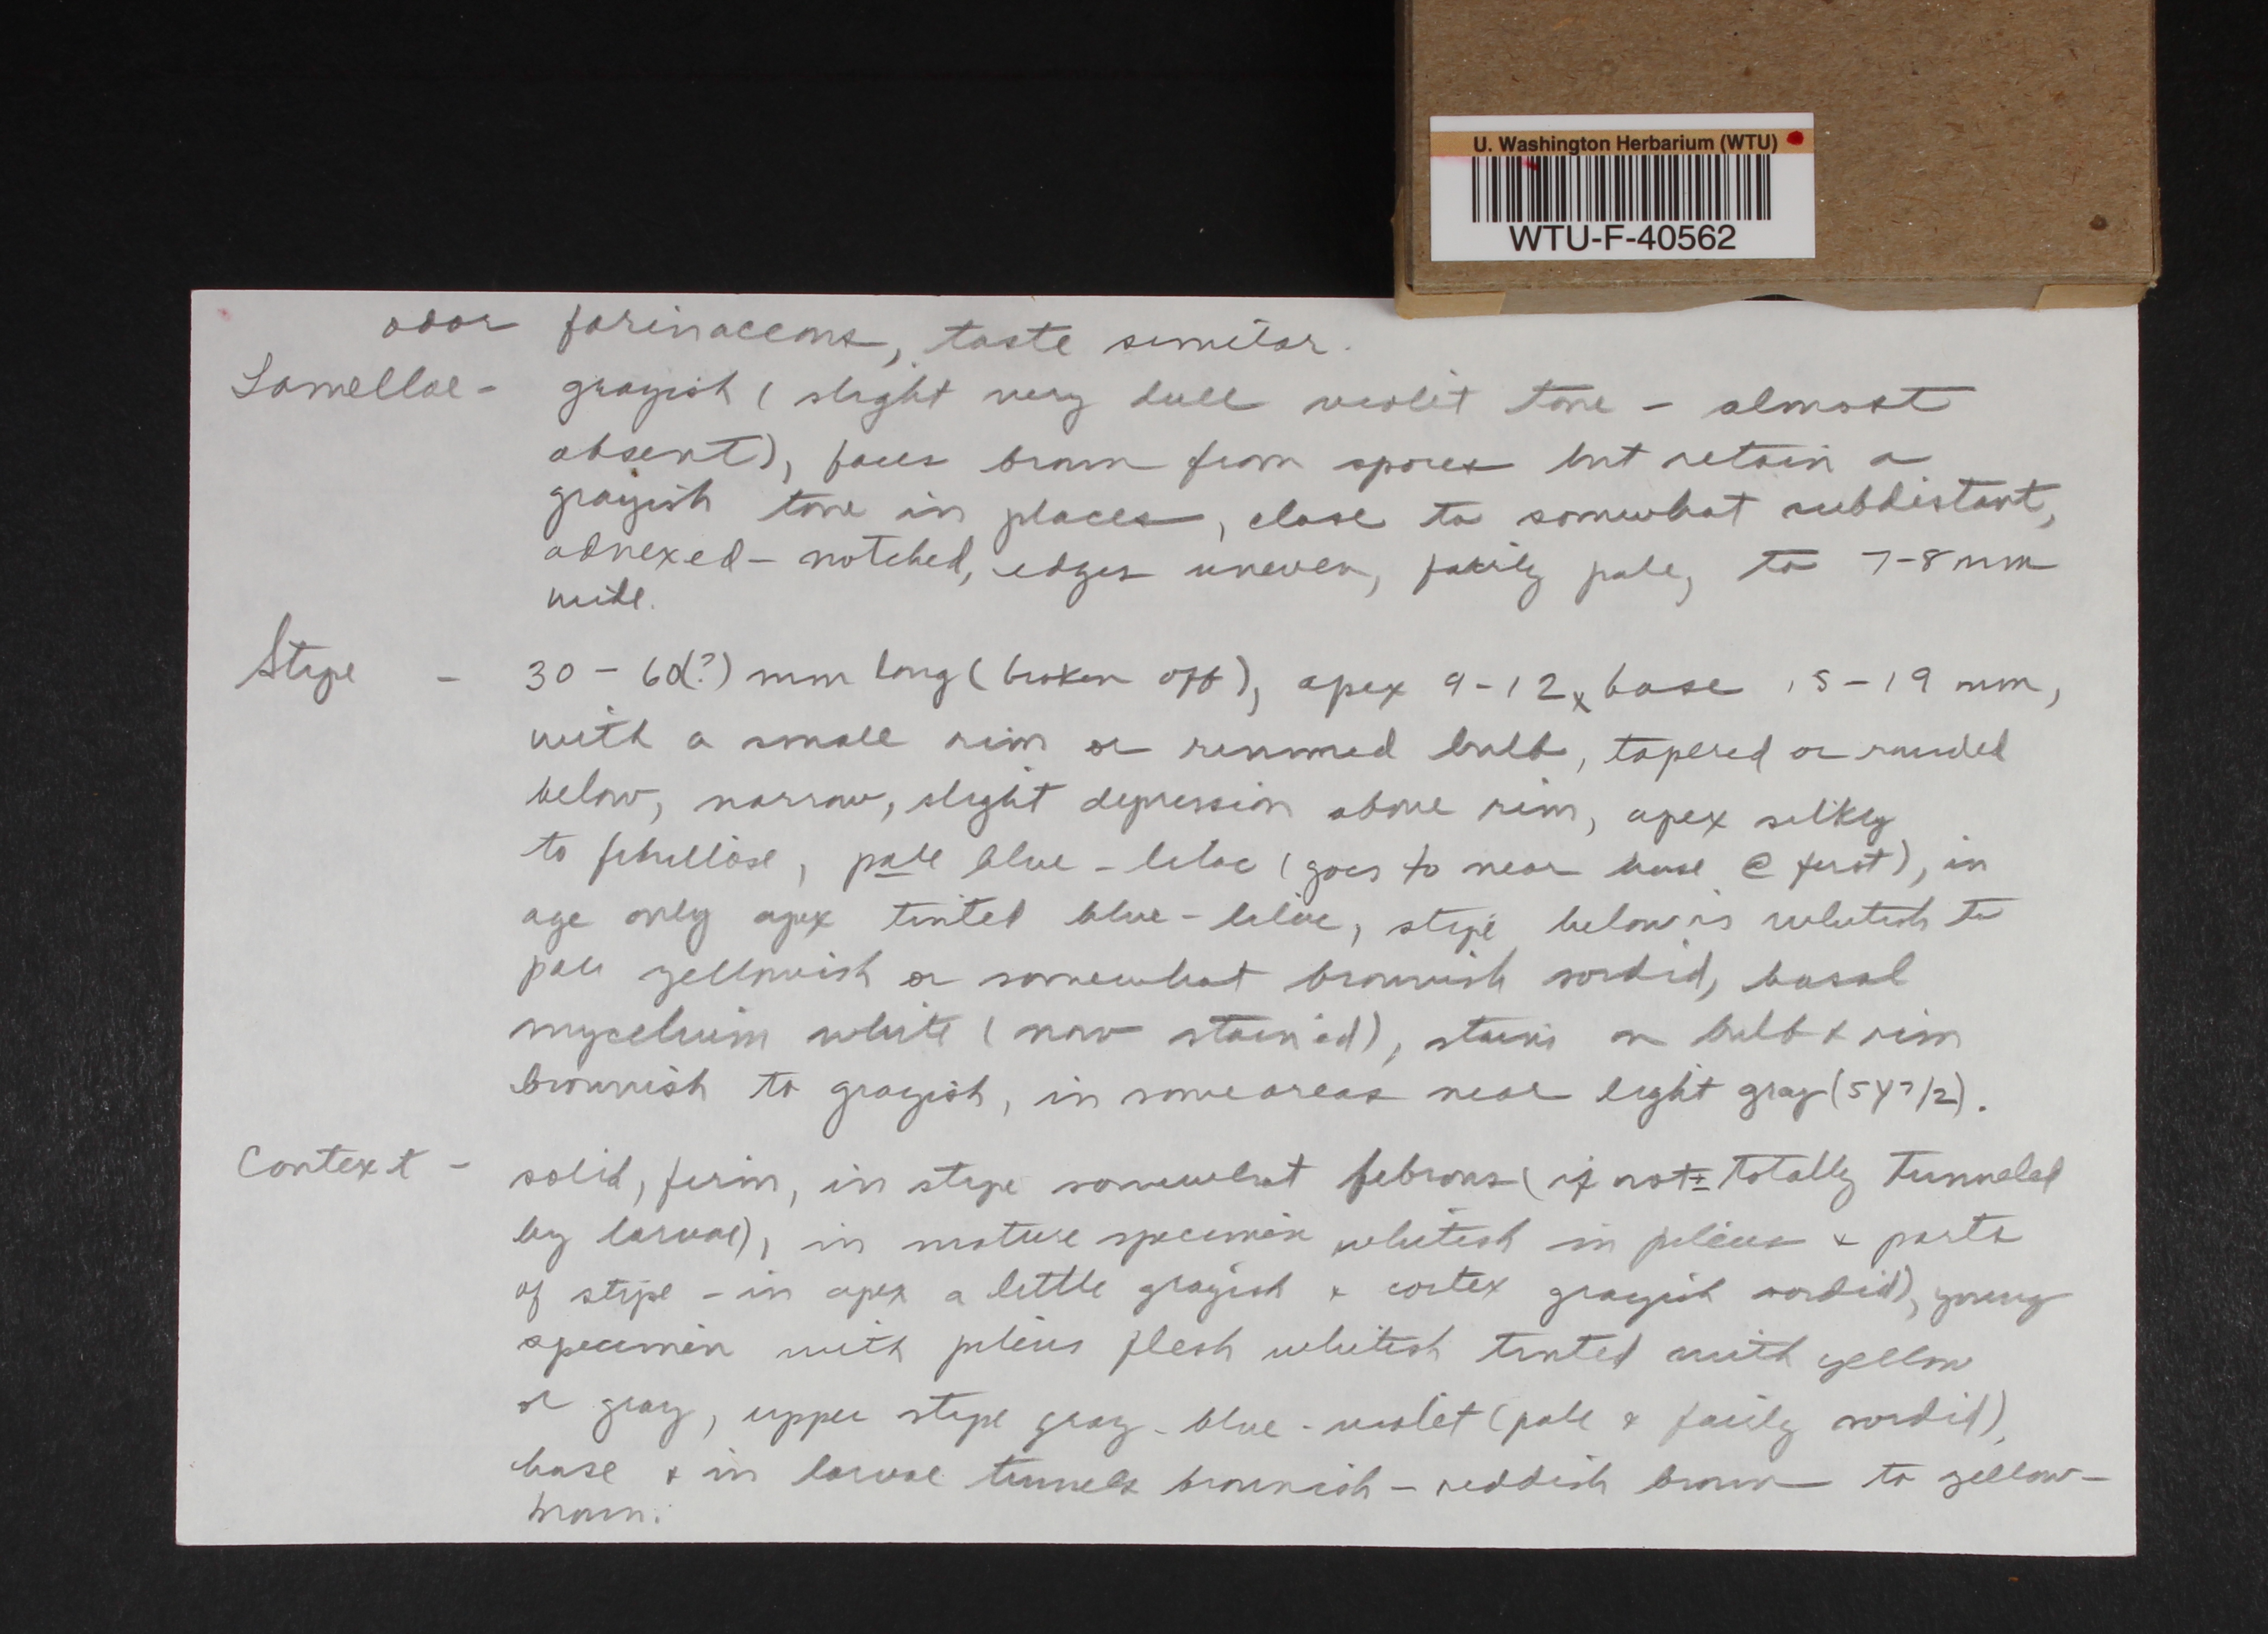 U. Washington Herbarium (WTU)
WTU-F-40562
odor farinaceous, taste similar.
Lamellae - grayish (slight very dull violet tone - almost
absent), faces brown from spores but retain a
grayish tone in places, close to somewhat subdistant,
adnexed - notched, edges uneven, fairly pale, to 7-8 mm
wide.
Stipe - 30 - 60(?) mm long (broken off), apex 9-12 x base 15-19 mm,
with a small rim or rimmed bulb, tapered or rounded
below, narrow, slight depression above rim, apex silky
to fibrillose, pale blue - lilac (goes to near base @ first), in
age only apex tinted blue - lilac, stipe below is whitish to
pale yellowish or somewhat brownish sordid, basal
mycelium white (now stained), stains on bulb & rim
brownish to grayish, in some areas near light gray (5Y7/2).
Context - solid, firm, in stipe somewhat fibrous (if not ± totally tunneled
by larvae), in mature specimen whitish in pileus & parts
of stipe - in apex a little grayish & cortex grayish sordid), young
specimen with pileus flesh whitish tinted with yellow
or gray, upper stipe gray - blue - violet (pale & fairly sordid),
base & in larvae tunnels brownish - reddish brown to yellow -
brown.